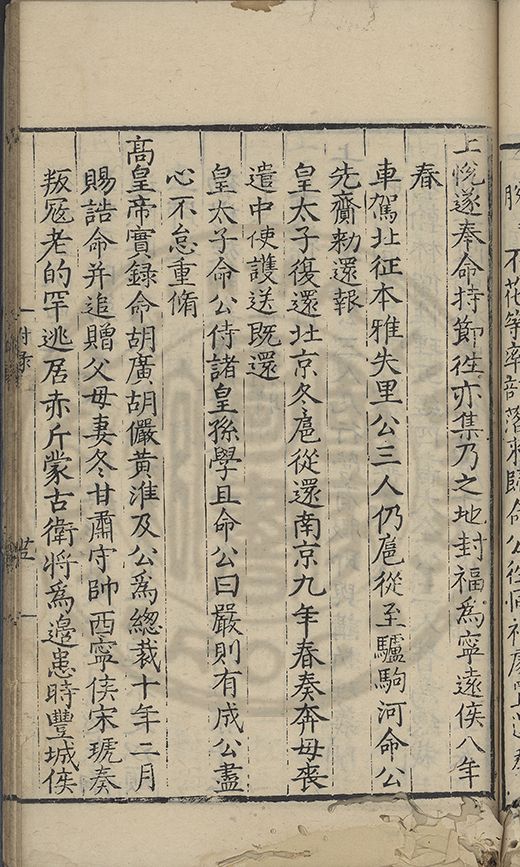 上悅遂奉命持節徃亦集乃之地封福爲寧遠侯八年
春
車駕北征本雅失里公三人仍扈從至驢駒河命公
先齎勑還報
皇太子復還北京冬扈從還南京九年春奏奔母喪
遣中使護送既還
皇太子命公侍諸皇孫學且命公曰嚴則有成公盡
心不怠重脩
高皇帝實録命胡廣胡儼黃淮及公爲總裁十年二月
賜誥命并追贈父母妻冬甘肅守帥西寧侯宋琥奏
叛冦老的罕逃居赤斤蒙古衛將爲邊患時豐城侯
附录